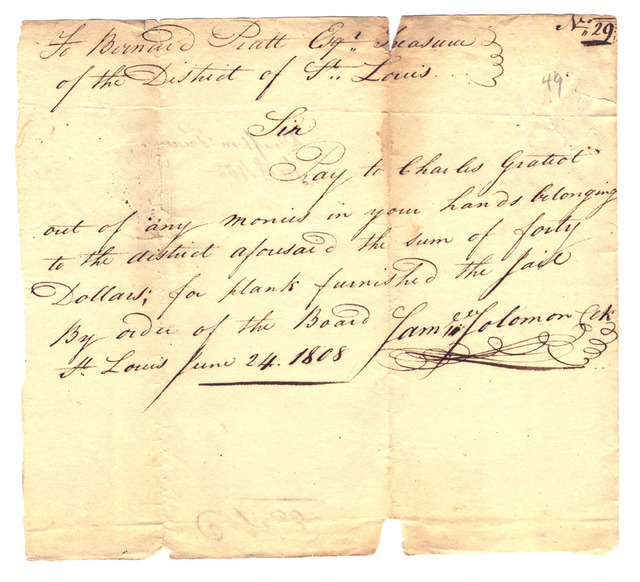 No. 29
49
To Bernard Pratt Esqr. Treasurer
of the District of St. Louis
Sir
Pay to Charles Gratiot
out of any monies in your hands belonging
to the district aforesaid the sum of forty
Dollars; for plank furnished the Jail
By order of the Board
Solomon Clk
St. Louis June 24. 1808